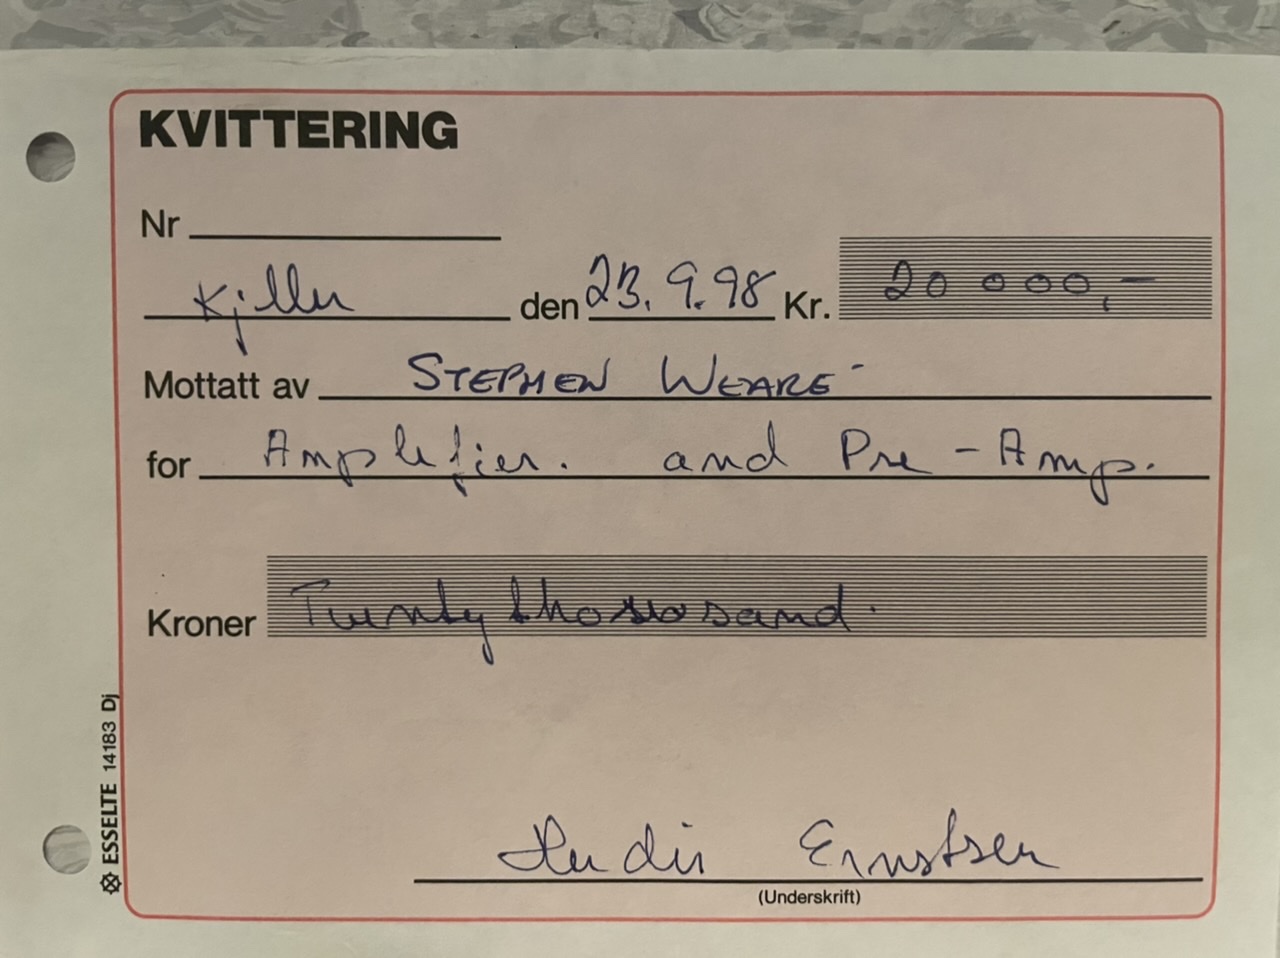 KVITTERING
Nr
Kjiller den 23.9.98 Kr. 20 000,-
Mottatt av STEPHEN WEARE
for Amplefier. and Pre-Amp.
Kroner Twenty
Ernstsen
(Underskrift)
ESSELTE 14183 Dj